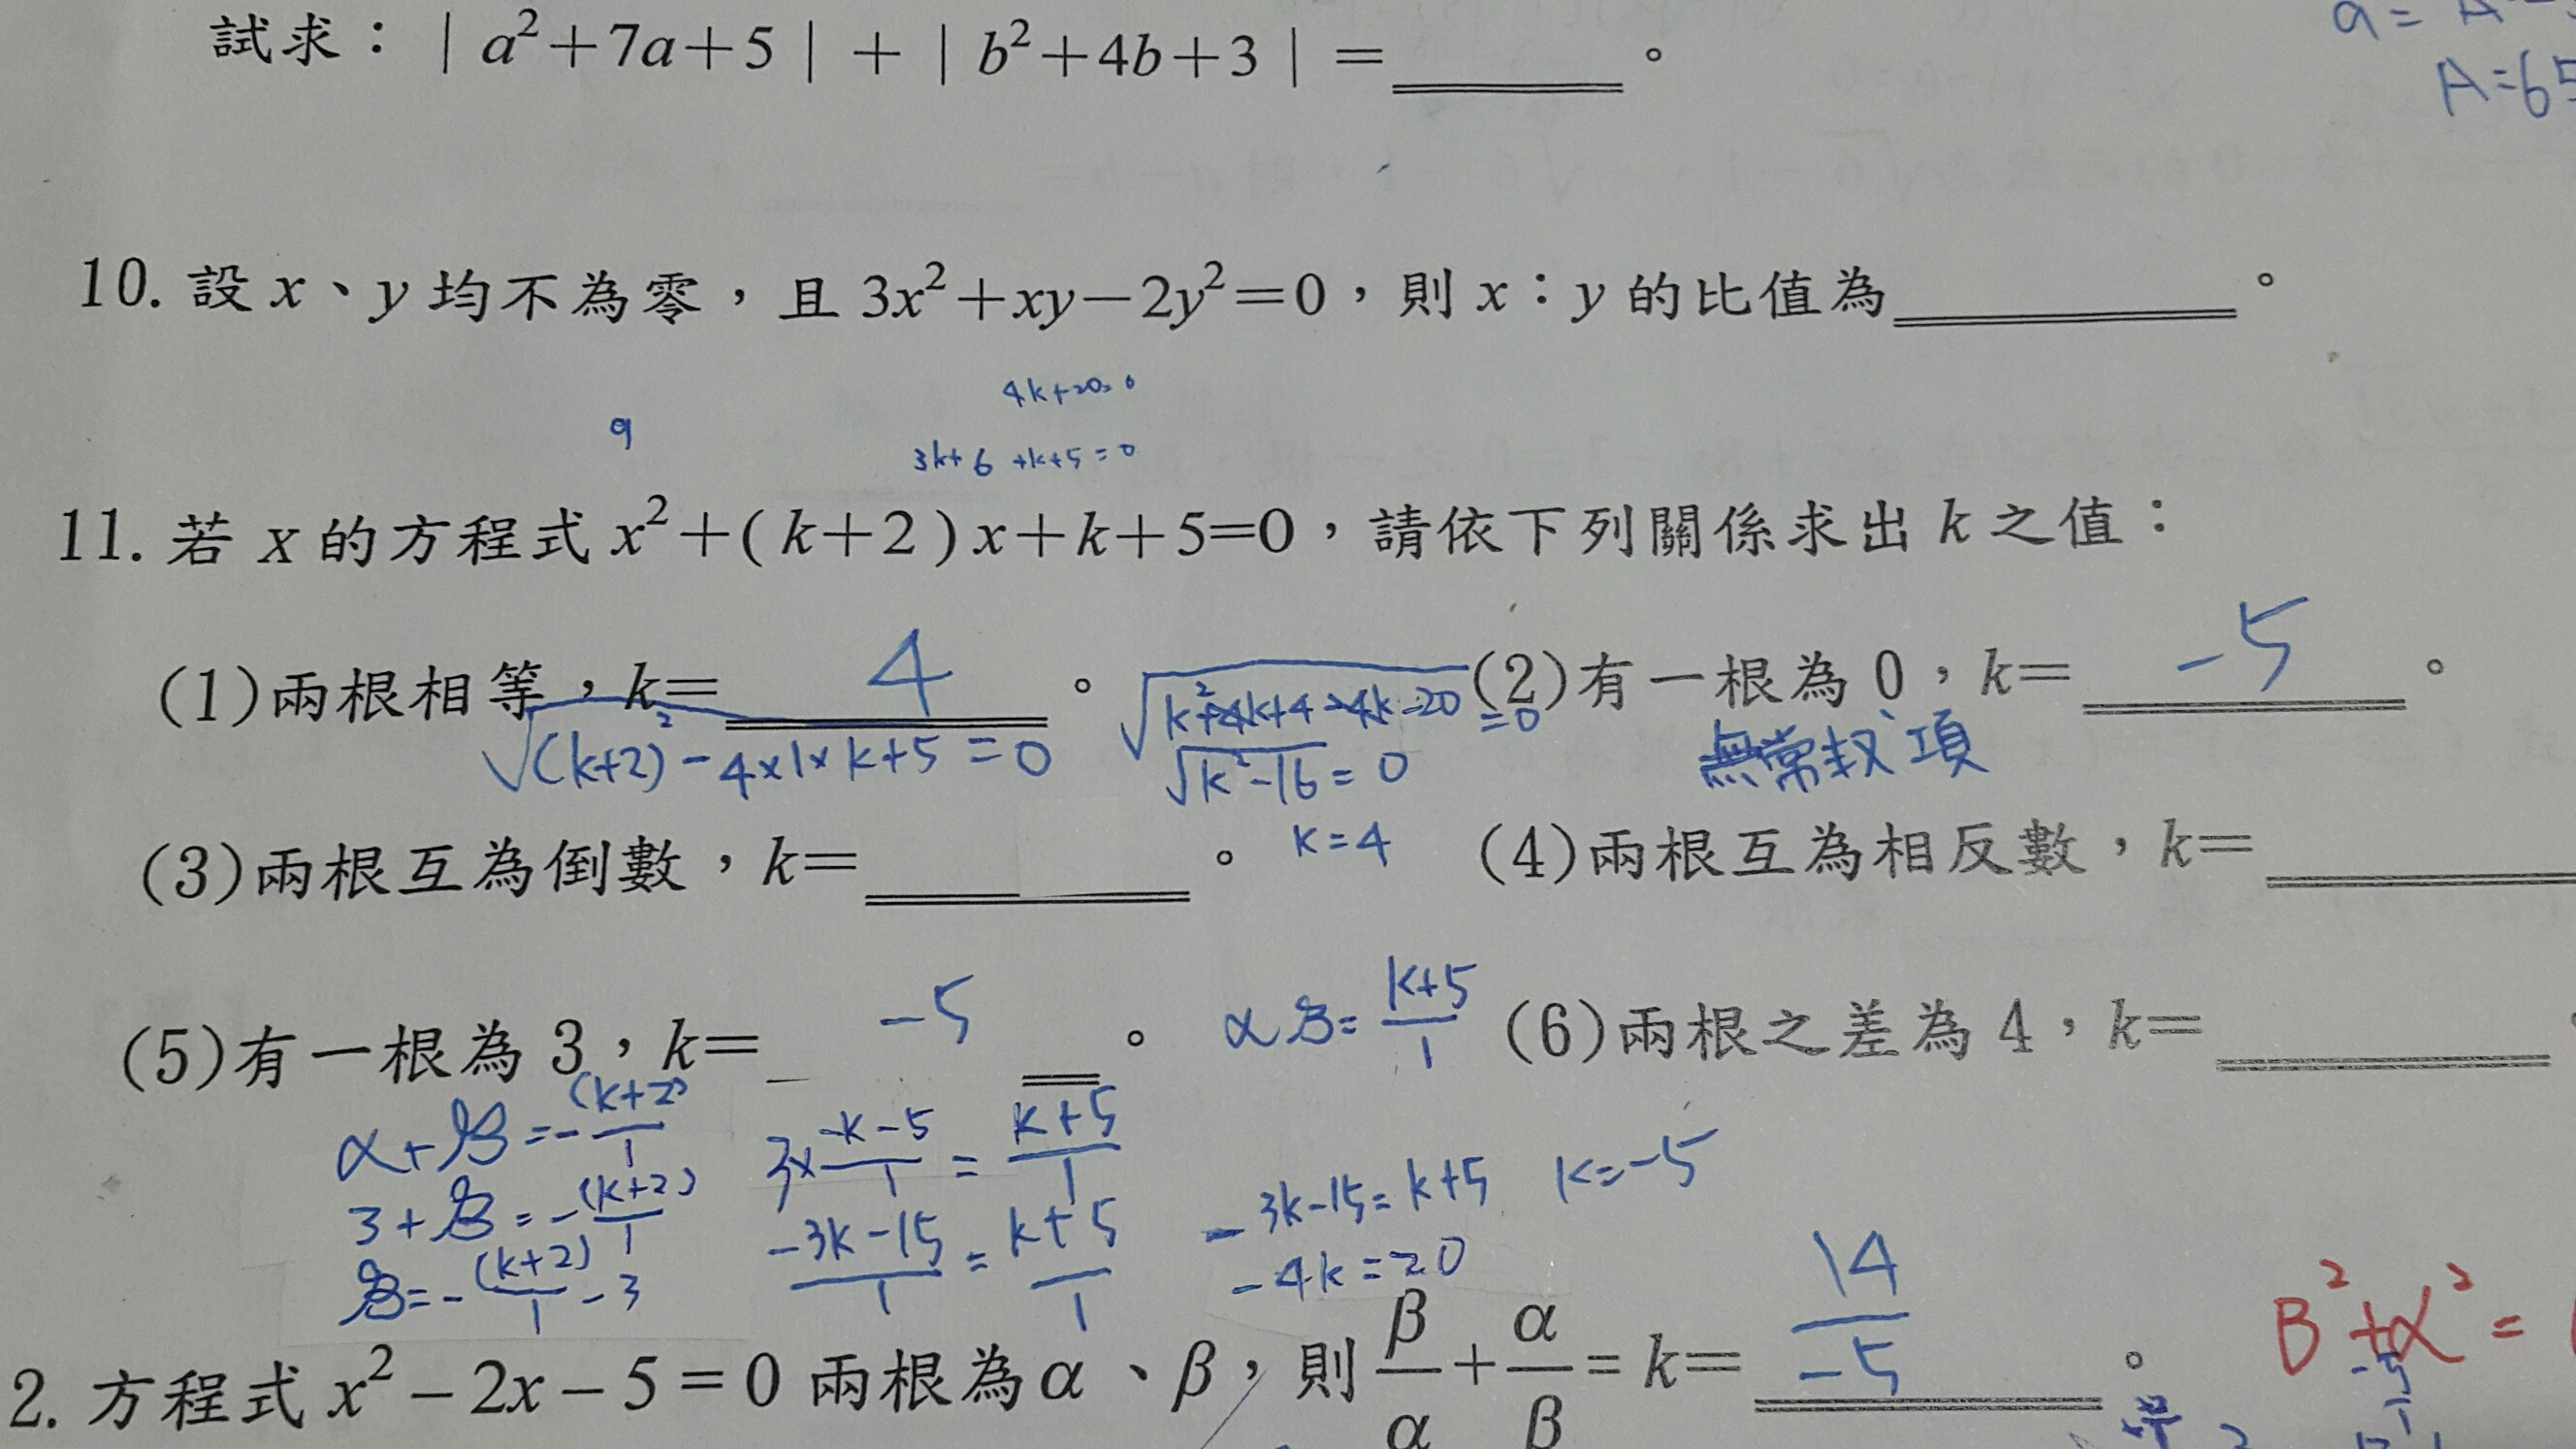 試求：| a²+7a+5 | + | b²+4b+3 | =______。
a= A
A=65
10. 設 x、y 均不為零，且 3x²+xy−2y²=0，則 x：y 的比值為______。
4k+20=0
9
3k+6 +k+5=0
11. 若 x 的方程式 x²+( k+2 ) x+k+5=0，請依下列關係求出 k 之值：
(1)兩根相等，k= 4 。
(2)有一根為 0，k= -5 。
√(k+2)²-4×1×k+5 =0
√k²+4k+4-4k-20 =0
無常數項
√k²-16=0
k=4
(3)兩根互為倒數，k=______。
(4)兩根互為相反數，k=______
(5)有一根為 3，k= -5 。
αβ= k+5/1
(6)兩根之差為 4，k=______
α+β=-(k+2)/1
3×-k-5/1 = k+5/1
3+β=-(k+2)/1
-3k-15/1 = k+5/1
-3k-15=k+5
k=-5
β=-(k+2)/1 -3
-4k=20
2. 方程式 x²−2x−5=0 兩根為α、β，則 β/α + α/β = k= 14/-5 。
β²+α²=